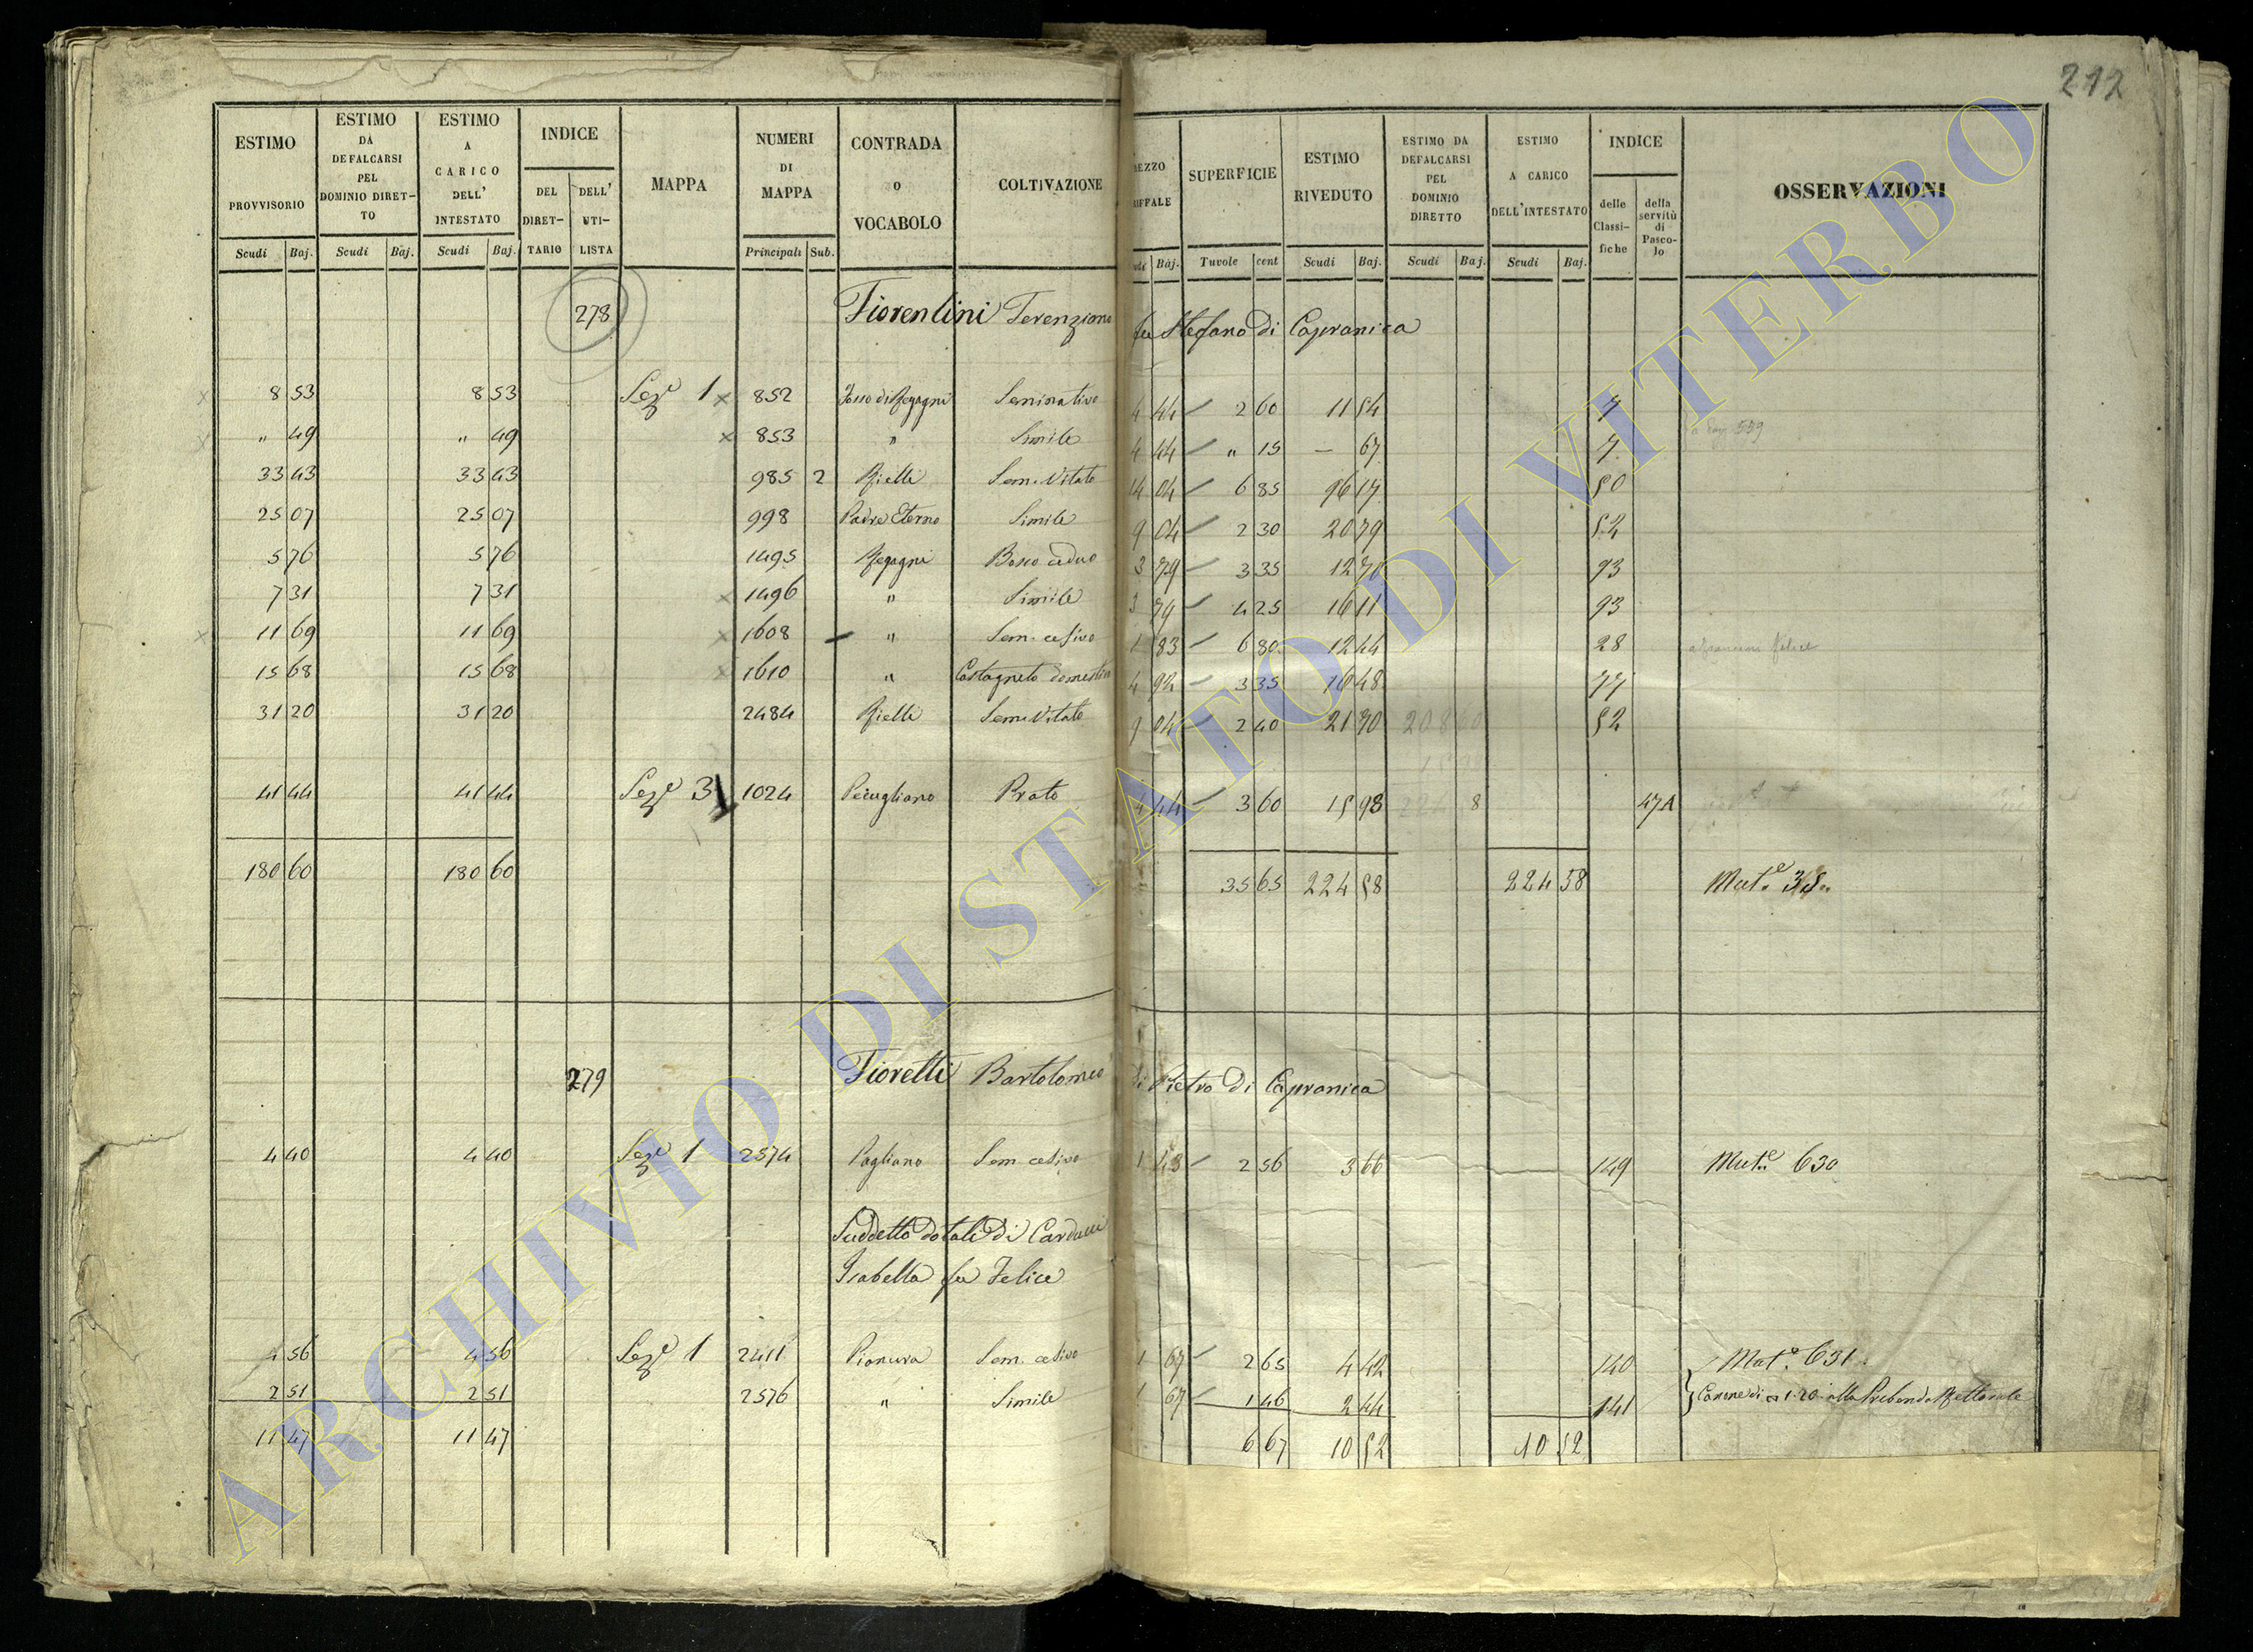 212
ESTIMO PROVVISORIO
ESTIMO DA DEFALCARSI PEL DOMINIO DIRET-TO
ESTIMO A CARICO DELL' INTESTATO
INDICE
DEL DIRET-TARIO
DELL' UTI-LISTA
MAPPA
NUMERI DI MAPPA
CONTRADA o VOCABOLO
COLTIVAZIONE
SUPERFICIE
ESTIMO RIVEDUTO
ESTIMO DA DEFALCARSI PEL DOMINIO DIRETTO
ESTIMO A CARICO DELL'INTESTATO
INDICE
delle Classi-fiche
della servitù di Pasco-lo
OSSERVAZIONI
Scudi Baj. Scudi Baj. Scudi Baj. Principali Sub. Baj. Tavole cent Scudi Baj. Scudi Baj. Scudi Baj.
278 Fiorentini Terenziano fu Stefano di Capranica
8 53 8 53 Seze 1 852 Fosso di Regagni Seminativo 4 44 2 60 11 54 7
" 49 " 49 853 " Simile 4 44 " 15 — 67 7
33 43 33 43 985 2 Rielli Sem. Vitato 14 04 6 85 96 17 50
25 07 25 07 998 Padre Eterno Simile 9 04 2 30 20 79 52
5 76 5 76 1495 Regagni Bosco ceduo 3 79 3 35 12 70 93
7 31 7 31 1496 " Simile 3 79 4 25 16 11 93
11 69 11 69 1608 " Sem. cesivo 1 83 6 80 12 44 28
15 68 15 68 1610 " Castagneto domestico 4 92 3 35 16 48 77
31 20 31 20 2484 Rielli Sem. Vitato 9 04 2 40 21 70 52
41 44 41 44 Seze 3 1024 Pecugliano Prato 4 44 3 60 15 98 47A
180 60 180 60 35 65 224 58 224 58 Mute
279 Fioretti Bartolomeo di Pietro di Capranica
4 40 4 40 Seze 1 2574 Pagliano Sem. cesivo 1 43 2 56 3 66 149 Mute 630
Suddetto dotale di Carducci
Isabella fu Felice
4 56 4 56 Seze 1 2411 Pianura Sem. cesivo 1 67 2 65 4 42 140 Mute 631
2 51 2 51 2576 " Simile 1 67 1 46 2 44 141 Canone di 1.20 alla Prebenda Rettorale
11 47 11 47 6 67 10 52 10 52
ARCHIVIO DI STATO DI VITERBO